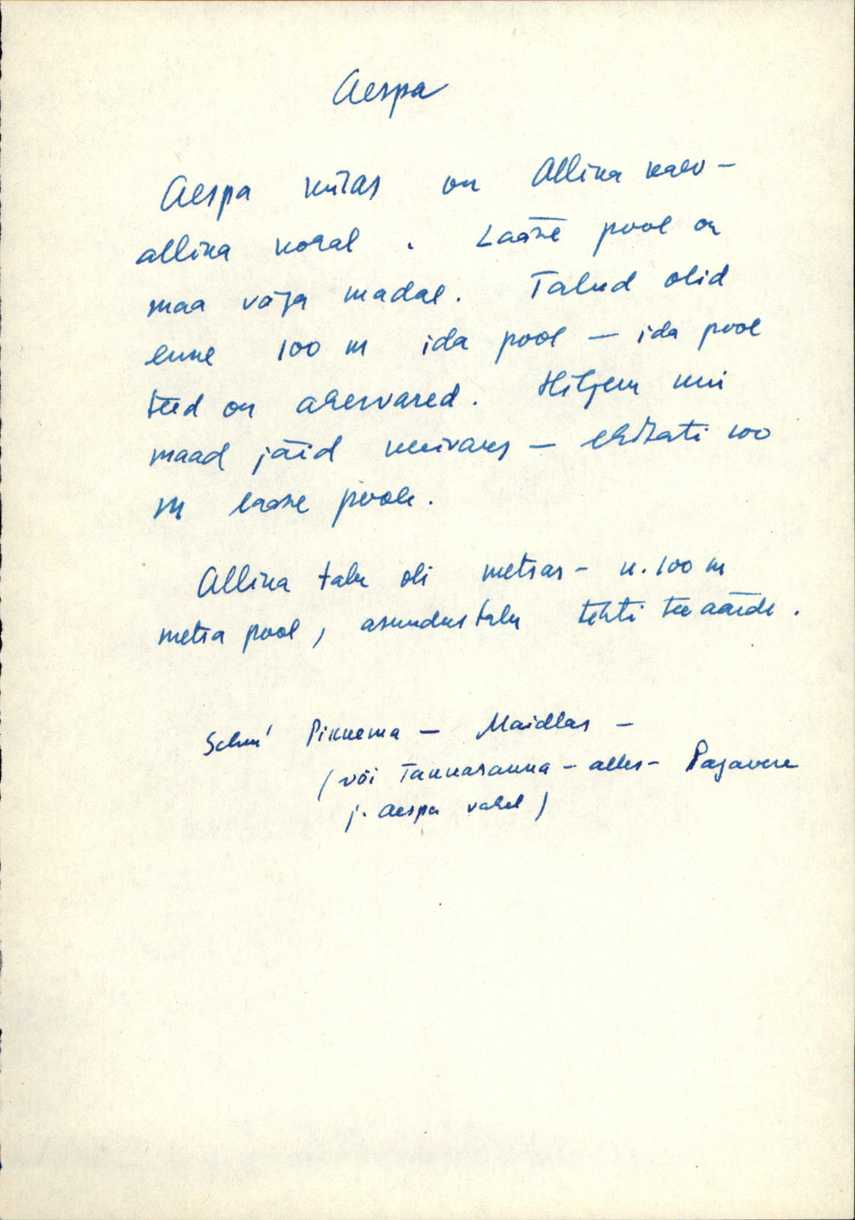 Aespa
Aespa külas on Allika kaev-
allika kohal. Lääne pool on
maa väga madal. Talud olid
enne 100 m ida pool — ida pool
teed on ahervared. Hiljem kui
maad jäid kuivaks — ehitati 100
m lääne poole.
Allika talu oli metsas - u. 100 m
metsa pool, asundustalu tehti tee äärde.
Piknema — Maidlas —
(või Tannasauna - alles - Pajavere
j. Aespa vahel)